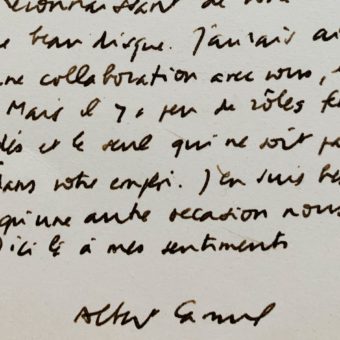 reconnaissant de
e beau disque. J'aurais ai
ne collaboration avec vous,
Mais il y a peu de rôles fe
dés et le seul qui ne soit pa
dans votre emploi. J'en suis
qu'une autre occasion nous
ici là à mes sentiments
Albert Camus